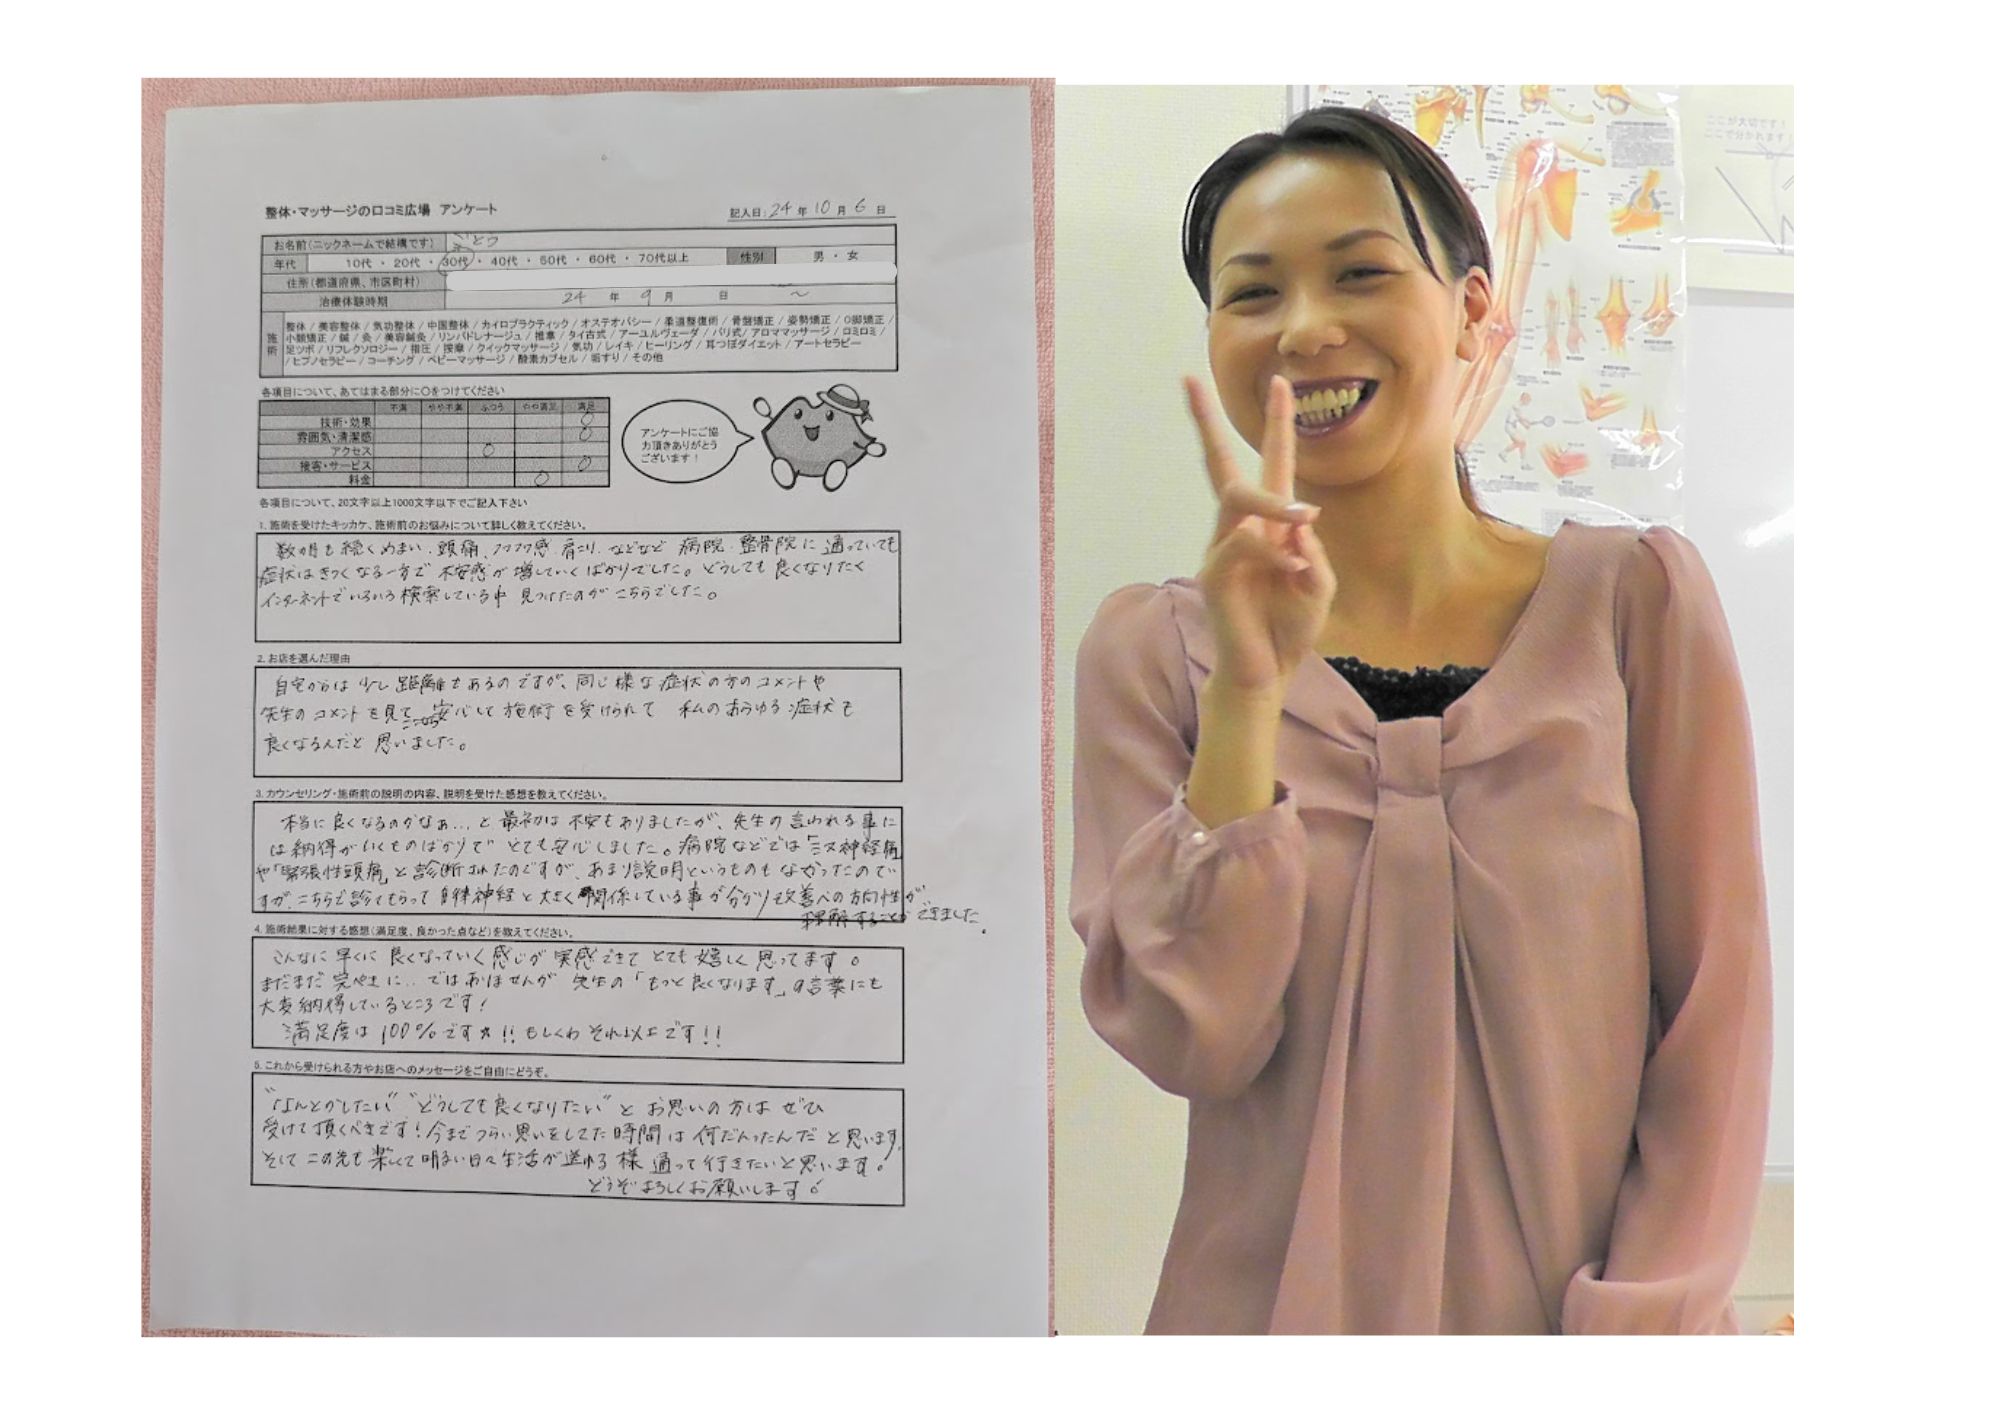 整体・マッサージの口コミ広場 アンケート
記入日: 24 年 10 月 6 日
お名前(ニックネームで結構です) ごとう
年代 10代 ・ 20代 ・ 30代 ・ 40代 ・ 50代 ・ 60代 ・ 70代以上 性別 男 ・ 女
住所(都道府県、市区町村)
治療体験時期 24 年 9 月 日 ~
施術
整体 / 美容整体 / 気功整体 / 中国整体 / カイロプラクティック / オステオパシー / 柔道整復術 / 骨盤矯正 / 姿勢矯正 / O脚矯正 /
小顔矯正 / 鍼 / 灸 / 美容鍼灸 / リンパドレナージュ / 推拿 / タイ古式 / アーユルヴェーダ / バリ式 / アロママッサージ / ロミロミ /
足ツボ / リフレクソロジー / 指圧 / 按摩 / クイックマッサージ / 気功 / レイキ / ヒーリング / 耳つぼダイエット / アートセラピー
/ ヒプノセラピー / コーチング / ベビーマッサージ / 酸素カプセル / 垢すり / その他
各項目について、あてはまる部分に○をつけてください
不満 やや不満 ふつう やや満足 満足
技術・効果 ○
雰囲気・清潔感 ○
アクセス ○
接客・サービス ○
料金 ○
アンケートにご協
力頂きありがとう
ございます!
各項目について、20文字以上1000文字以下でご記入下さい
1. 施術を受けたキッカケ、施術前のお悩みについて詳しく教えてください。
数か月も続くめまい、頭痛、フワフワ感、肩こり、などなど 病院、整骨院に通っていても
症状はきつくなる一方で 不安感が増していくばかりでした。どうしても良くなりたく
インターネットでいろいろ検索している中 見つけたのがこちらでした。
2. お店を選んだ理由
自宅からは少し距離もあるのですが、同じ様な症状の方のコメントや
先生のコメントを見て、こちらなら安心して施術を受けられて 私のあらゆる症状も
良くなるんだと思いました。
3. カウンセリング・施術前の説明の内容、説明を受けた感想を教えてください。
本当に良くなるのかなぁ…と最初は不安もありましたが、先生の言われる事に
は納得がいくものばかりで とても安心しました。病院などでは「三叉神経痛」
や「緊張性頭痛」と診断されたのですが、あまり説明というものもなかったので
すが、こちらで診てもらって 自律神経と大きく関係している事が分かり改善への方向性が
理解することができました。
4. 施術結果に対する感想(満足度、良かった点など)を教えてください。
こんなに早くに良くなっていく感じが実感できて とても嬉しく思ってます。
まだまだ完ペキに…ではありませんが 先生の「もっと良くなります」の言葉にも
大変納得しているところです!
満足度は100%です!! もしくわ それ以上です!!
5. これから受けられる方やお店へのメッセージをご自由にどうぞ。
"なんとかしたい" "どうしても良くなりたい" と お思いの方は ぜひ
受けて頂くべきです!今までつらい思いをしてた時間は何だったんだと思います。
そして この先も楽しくて明るい日々生活が送れる様 通って行きたいと思います。
どうぞよろしくお願いします
ここが大切です!
ここで分かれます!